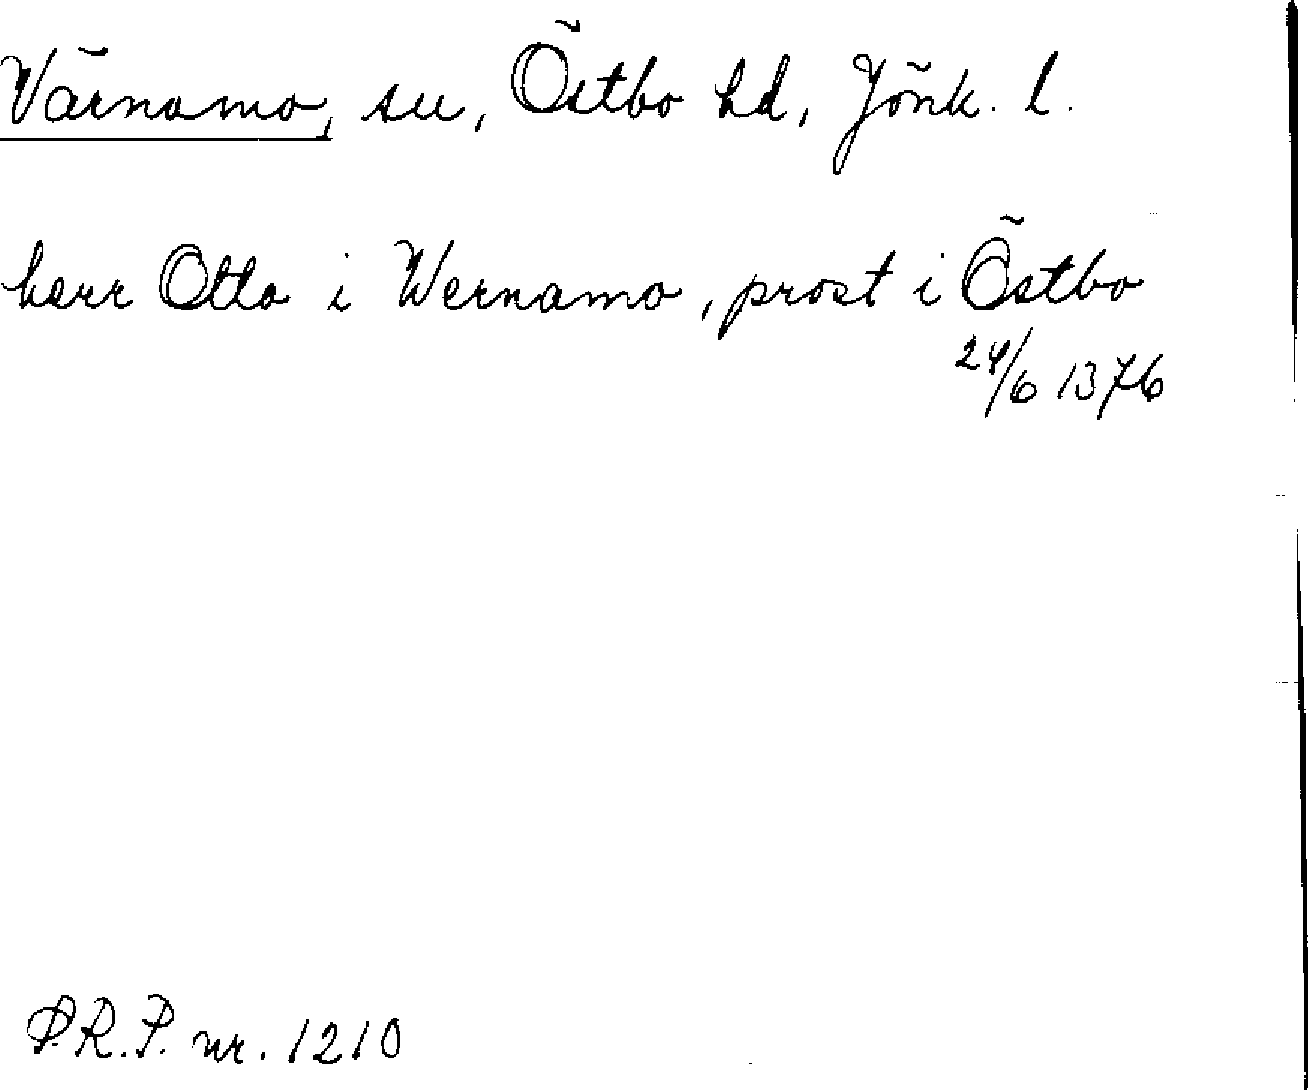 Värnamo, sn, Östbo hd, Jönk. l.
herr Otto i Wernamo, prost i Östbo
24/6 1376
P.R.P. nr. 1210